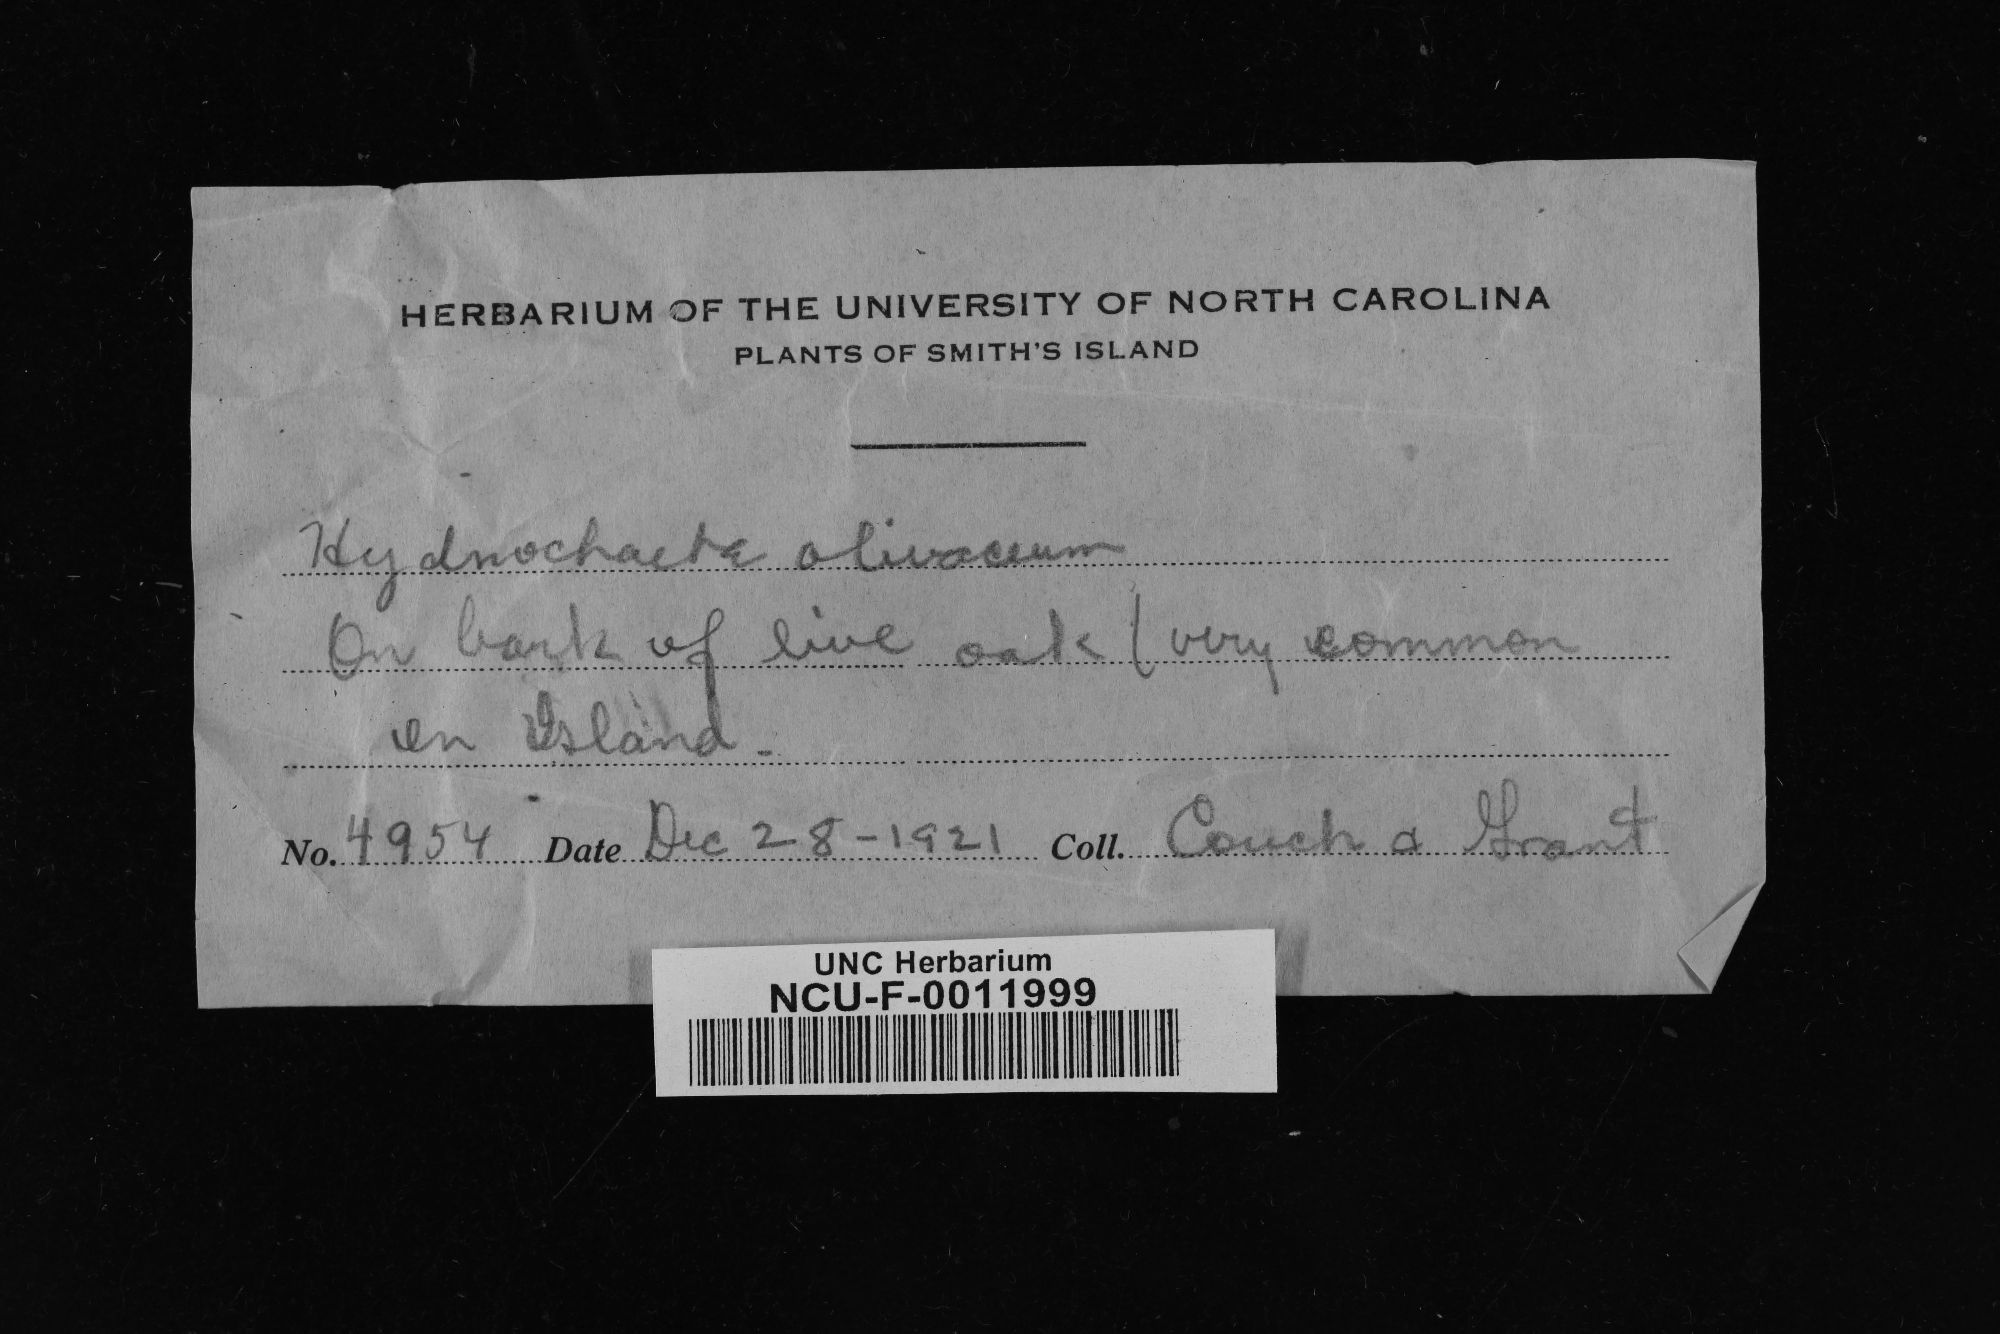 HERBARIUM OF THE UNIVERSITY OF NORTH CAROLINA
PLANTS OF SMITH'S ISLAND
Hydnochaete olivaceum
On bark of live oak (very common
on Island.
No. 4954 Date Dec 28-1921 Coll. Couch & Grant
UNC Herbarium
NCU-F-0011999